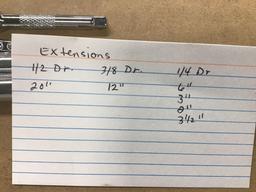 Extensions
1/2 Dr. 3/8 Dr. 1/4 Dr
20" 12" 6"
3"
8"
3 1/2"